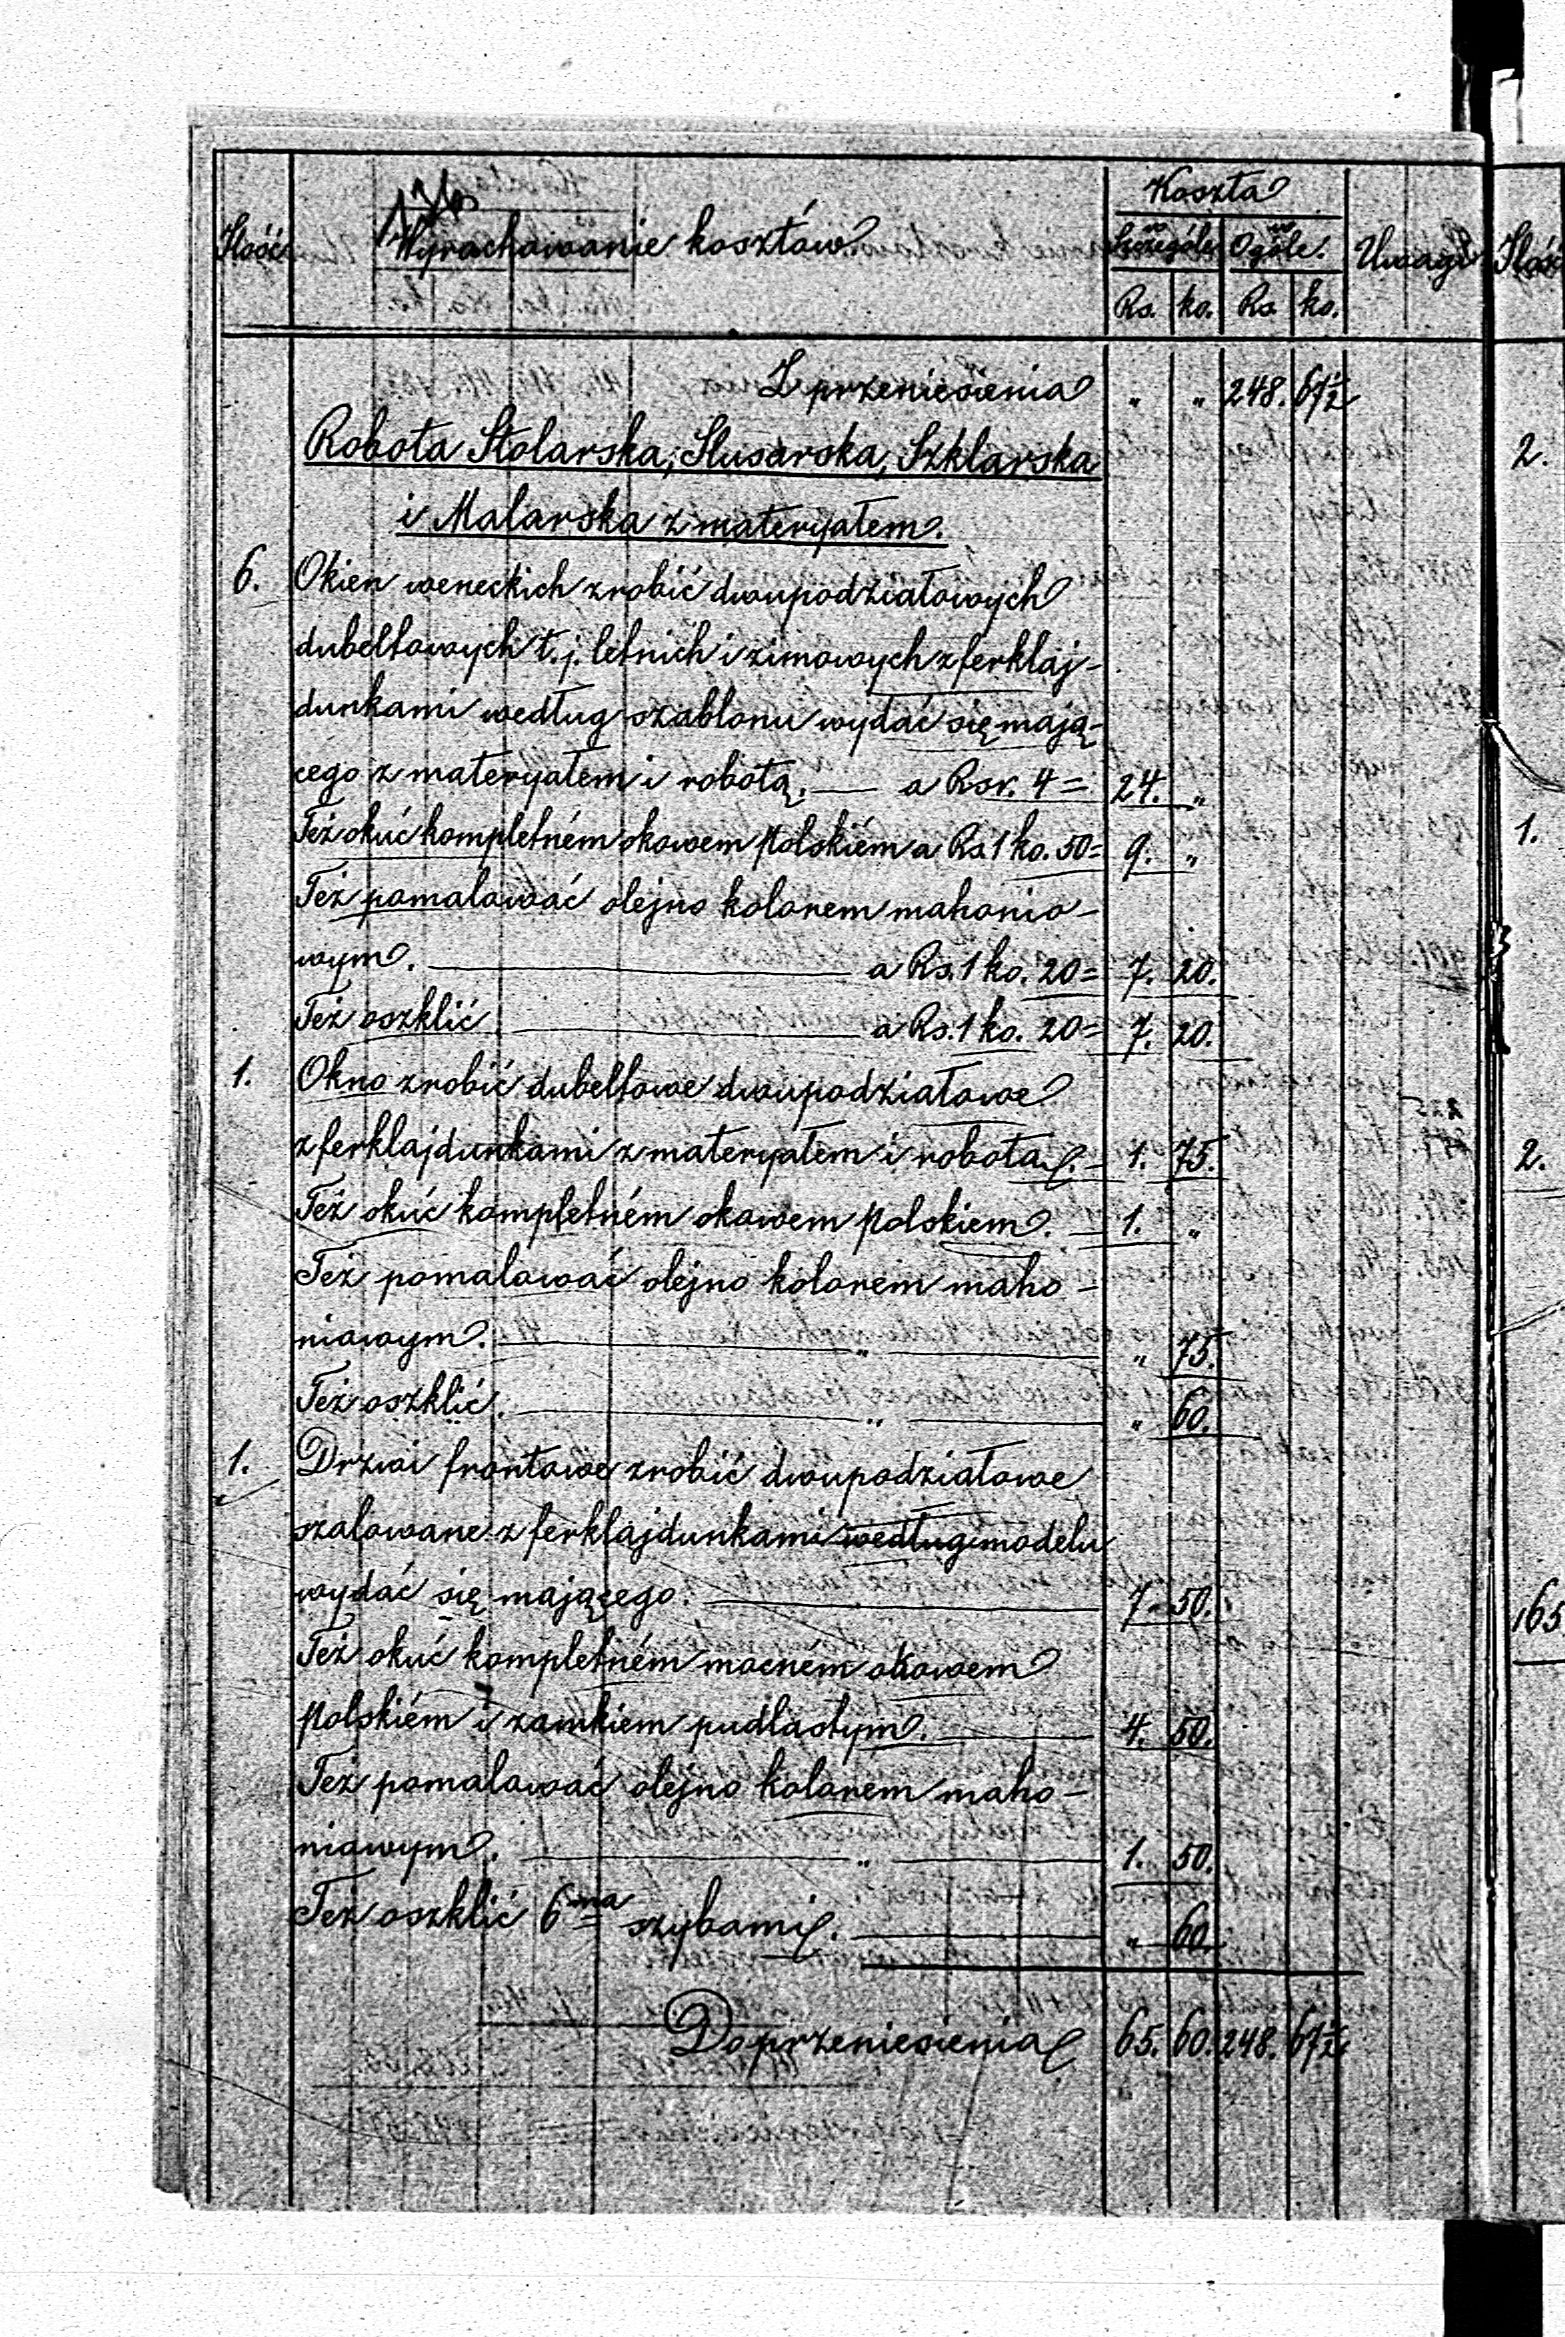 Koszta
Ilość Wyrachowanie kosztów. w Szczególe w Ogóle. Uwagi Ilość
Rs. ko. Rs. ko.
Z przeniesienia " " 248. 67½
Robota Stolarska, Slusarska, Szklarska
i Malarska z materyałem.
6. Okien weneckich zrobić dwupodziałowych
dubeltowych t. j. letnich i zimowych z ferklaj-
dunkami według szablonu wydać się mają-
cego z materyałem i robotą. — a Rsr. 4 = 24. "
Też okuć kompletném okowem polskiém a Rs 1 ko. 50 = 9. "
Też pomalować olejno kolorem mahonio-
wym. — a Rs. 1 ko. 20 = 7. 20.
Też oszklić — a Rs. 1 ko. 20 = 7. 20.
1. Okno zrobić dubeltowe dwupodziałowe
z ferklajdunkami z materyałem i robotą. — 1. 75.
Też okuć kompletném okowem polskiem. — 1. "
Też pomalować olejno kolorem maho-
niowym. — " — " 75.
Też oszklić. — " — " 60.
1. Drzwi frontowe zrobić dwupodziałowe
szalowane z ferklajdunkami według modelu
wydać się mającego. — 7. 50.
Też okuć kompletném mocném okowem
polskiém i zamkiem pudlastym. — 4. 50.
Też pomalować olejno kolorem maho-
niowym. — " — 1. 50.
Też oszklić 6ma szybami. — " 60.
Do przeniesienia 65. 60. 248. 67½
2.
1.
2.
165